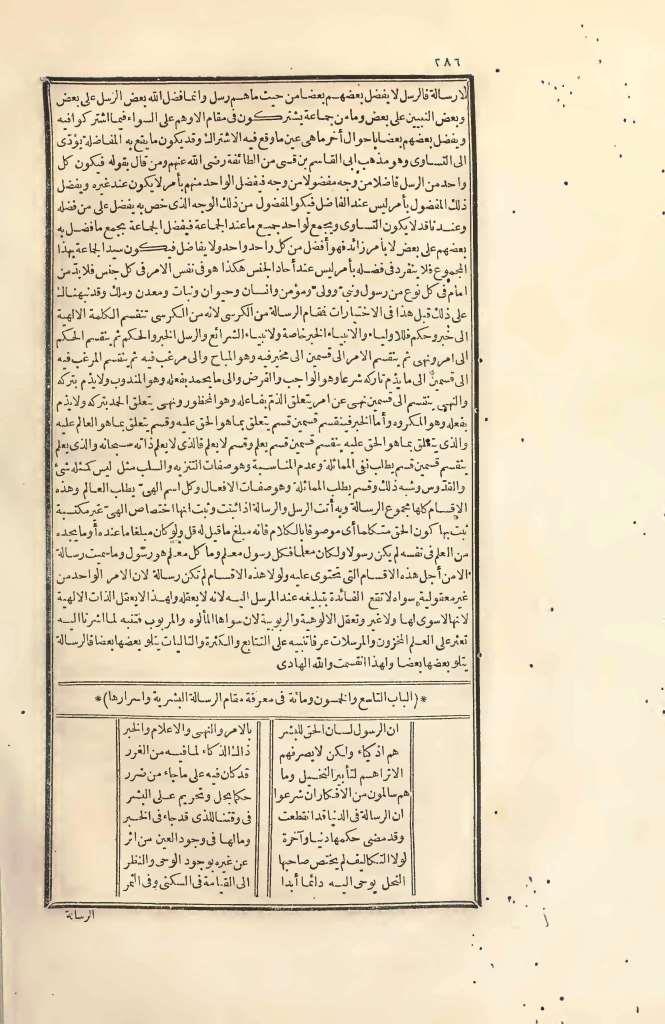 ٢٨٦
لارسالة فالرسل لا يفضل بعضهم بعضا من حيث ما هم رسل وانما فضل الله بعض الرسل على بعض
وبعض النبيين على بعض وما من جماعة يشتركون فى مقام الا وهم على السواء فيما اشتركوا فيه
ويفضل بعضهم بعضا باحوال أخر ما هى عين ما وقع فيه الاشتراك وقد يكون ما يقع به المفاضلة يؤدّى
الى التساوى وهو مذهب ابى القاسم بن قسى من الطائفة رضى الله عنهم ومن قال بقوله فيكون كل
واحد من الرسل فاضلا من وجه مفضولا من وجه فيفضل الواحد منهم بأمر لا يكون عند غيره ويفضل
ذلك المفضول بأمر ليس عند الفاضل فيكون المفضول من ذلك الوجه الذى خص به يفضل على من فضله
وعندنا قد لا يكون التساوى ويجمع لواحد جميع ما عند الجماعة فيفضل الجماعة بجمع ما فضل به
بعضهم على بعض لا بأمر زائد فهو أفضل من كل واحد واحد ولا يفاضل فيكون سيد الجماعة بهذا
المجموع فلا ينفرد فى فضله بأمر ليس عند آحاد الجنس هكذا هو فى نفس الامر فى كل جنس فلا بدّ من
امام فى كل نوع من رسول ونبىّ وولىّ ومؤمن وانسان وحيوان ونبات ومعدن وملك وقد نبهناك
على ذلك قبل هذا فى الاختيارات فمقام الرسالة من الكرسى لانه من الكرسى تنقسم الكلمة الالهية
الى خبر وحكم فللاولياء والانبياء الخبر خاصة ولانبياء الشرائع والرسل الخبر والحكم ثم ينقسم الحكم
الى امر ونهى ثم ينقسم الامر الى قسمين الى مخير فيه وهو المباح والى مرغب فيه ثم ينقسم المرغب فيه
الى قسمين الى ما يذم تاركه شرعا وهو الواجب والفرض والى ما يحمد بفعله وهو المندوب ولا يذم بتركه
والنهى ينقسم الى قسمين نهى عن امر يتعلق الذم بفاعله وهو المحظور ونهى يتعلق الحمد بتركه ولا يذم
بفعله وهو المكروه وأما الخبر فينقسم قسمين قسم يتعلق بما هو الحق عليه وقسم يتعلق بما هو العالم عليه
والذى يتعلق بما هو الحق عليه ينقسم قسمين قسم يعلم وقسم لا يعلم فالذى لا يعلم ذاته سبحانه والذى يعلم
ينقسم قسمين قسم يطلب نفى المماثلة وعدم المناسبة وهو صفات التنزيه والسلب مثل ليس كمثله شئ
والقدّوس وشبه ذلك وقسم يطلب المماثلة وهو صفات الافعال وكل اسم الهىّ يطلب العالم وهذه
الاقسام كلها مجموع الرسالة وبه أنت الرسل والرسالة اذا ثبتت وثبت انها اختصاص الهىّ غير مكتسبة
ثبت بها كون الحق متكلما أى موصوفا بالكلام فانه مبلغ ما قيل له قل ولو كان مبلغا ما عنده أو ما يجده
من العلم فى نفسه لم يكن رسولا ولكان معلما فكل رسول معلم وما كل معلم هو رسول وما سميت رسالة
الا من أجل هذه الاقسام التى تحتوى عليه ولولا هذه الاقسام لم تكن رسالة لان الامر الواحد من
غير معقولية سواه لا تقع الفائدة بتبليغه عند المرسل اليه لانه لا يعقله ولهذا لا يعقل الذات الالهية
لانها لا سوى لها ولا غير وتعقل الالوهية والربوبية لان سواها المألوه والمربوب فتنبه لما اشرنا اليه
تعثر على العلم المخزون والمرسلات عرفا تنبيه على التتابع والكثرة والتاليات يتلو بعضها بعضا فالرسالة
يتلو بعضها بعضا ولهذا انقسمت والله الهادى
*(الباب التاسع والخمسون ومائة فى معرفة مقام الرسالة البشرية واسرارها)*
ان الرسول لسان الحق للبشر بالامر والنهى والاعلام والخبر
هم اذكياء ولكن لا يصرفهم ذاك الذكاء لما فيه من الغرر
الا تراهم لتأبير النخيل وما قد كان فيه على ما جاء من ضرر
هم سالمون من الافكار ان شرعوا حكما بحل وتحريم على البشر
ان الرسالة فى الدنيا قد انقطعت فى وقتنا للذى قد جاء فى الخبر
وقد مضى حكمها دنيا وآخرة وما لها فى وجود العين من اثر
لولا التكاليف لم يختص صاحبها عن غيره بوجود الوحى والنظر
النحل يوحى اليه دائما أبدا الى القيامة فى السكنى وفى الثمر
الرسالة